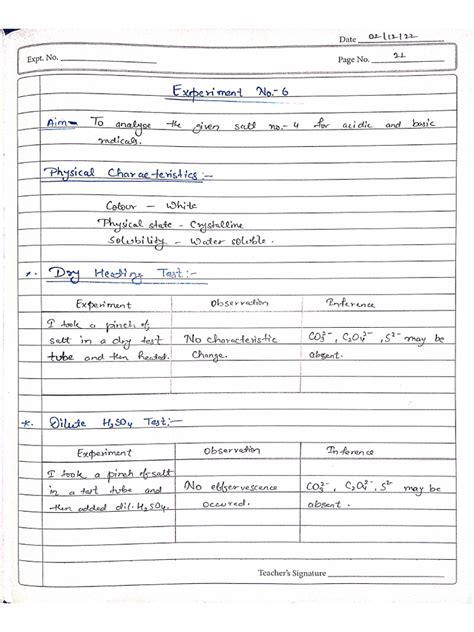 Date 02/12/22
Expt. No.
Page No. 21
Experiment No.- 6
Aim- To analyse the given salt no.- 4 for acidic and basic
radicals.
Physical Characteristics:-
Colour - White
Physical state - Crystalline
Solubility - Water soluble.
*. Dry Heating Test:-
Experiment Observation Inference
I took a pinch of
salt in a dry test No characteristic CO₃²⁻, C₂O₄²⁻, S²⁻ may be
tube and then heated. Change. absent.
*. Dilute H₂SO₄ Test:-
Experiment Observation Inference
I took a pinch of salt
in a test tube and No effervescence CO₃²⁻, C₂O₄²⁻, S²⁻ may be
then added dil. H₂SO₄. occured. absent.
Teacher's Signature